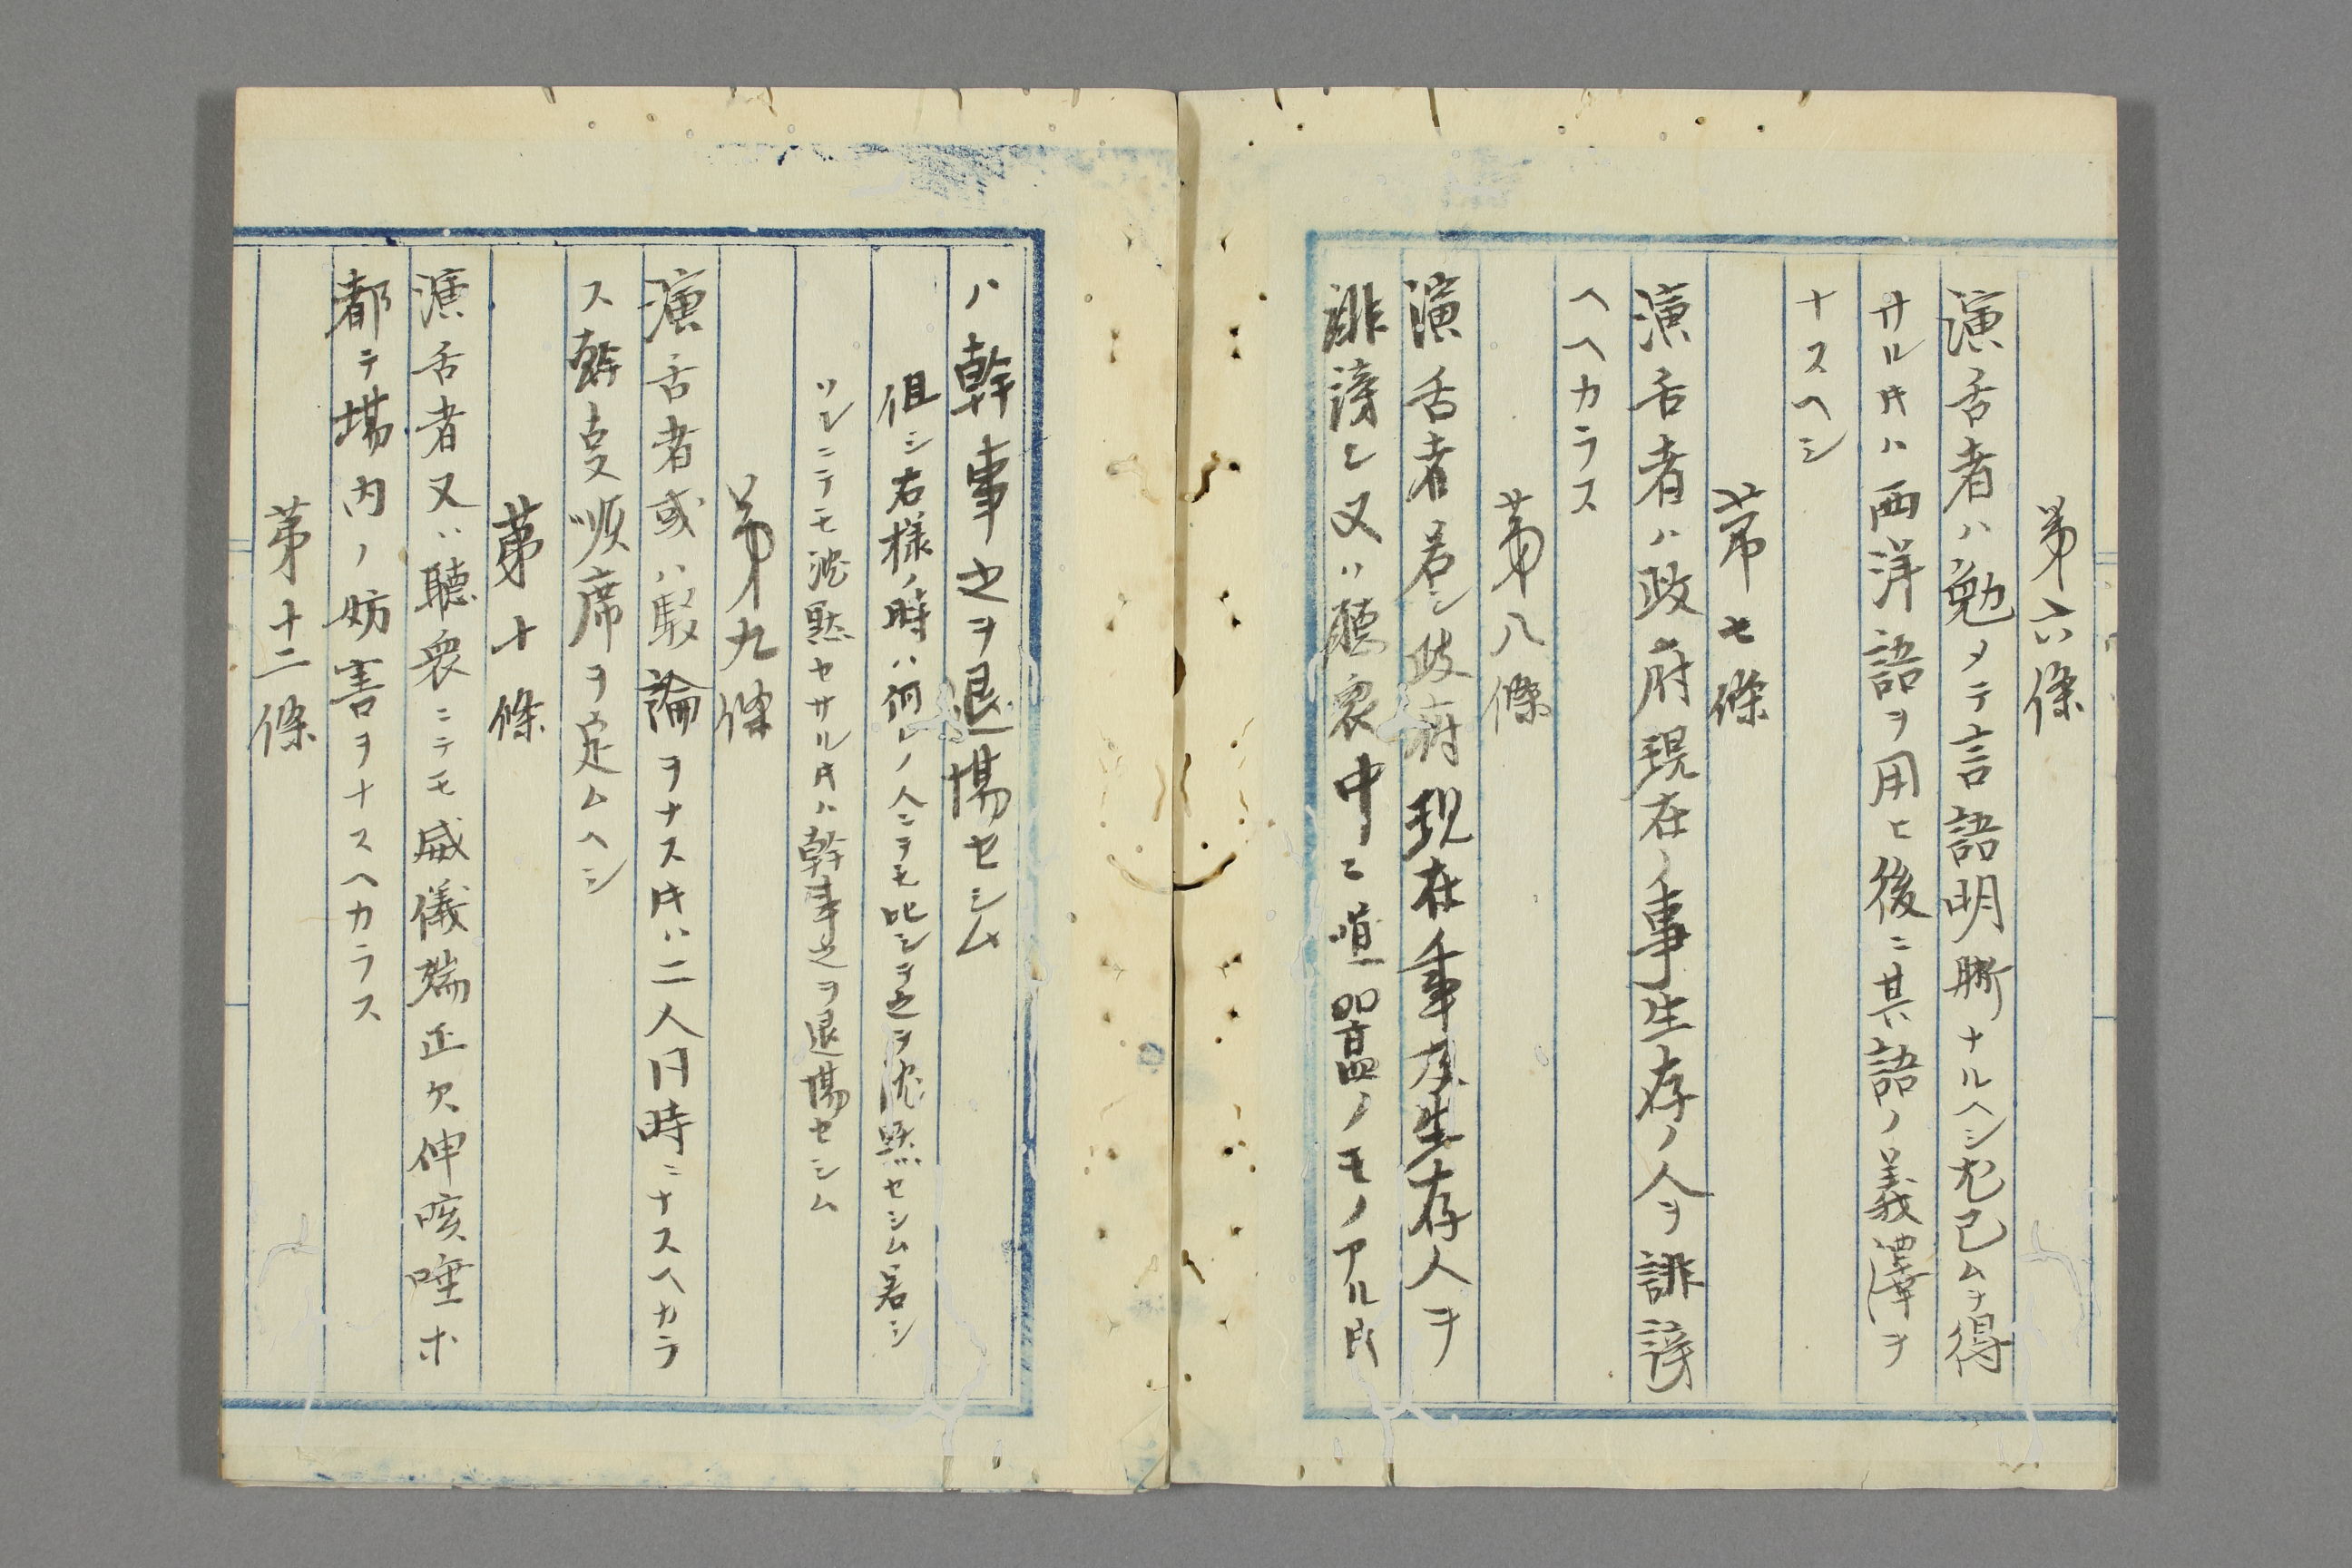 第六條
演舌者ハ勉メテ言語明晰ナルヘシ尤已ムヲ得
サル𪜈ハ西洋語ヲ用ヒ後ニ其語ノ義澤ヲ
ナスヘシ
第七條
演舌者ハ政府現在ノ事生存ノ人ヲ誹謗
スヘカラス
第八條
演舌者若シ政府現在事生存人ヲ
誹謗シ又ハ聽衆中ニ喧囂ノモノアル時
ハ幹事之ヲ退場セシム
但シ右様ノ時ハ何レノ人ニテモ叱シヲ之ヲ沈黙セシム若シ
ソレニテモ沈黙セサル時ハ幹事之ヲ退場セシム
第九條
演舌者或ハ駁論ヲナス時ハ二人同時ニナスヘカラ
ス幹事順席ヲ定ムヘシ
第十條
演舌者又ハ聽衆ニテモ威儀端正欠伸咳唾ホ
都テ場内ノ妨害ヲナスヘカラス
第十二條